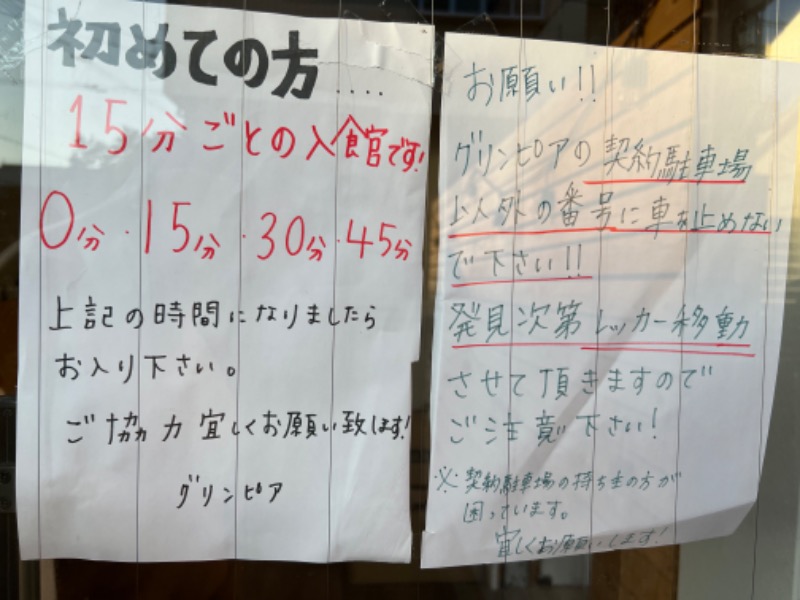 初めての方....
15分ごとの入館です!
0分・15分・30分・45分
上記の時間になりましたら
お入り下さい。
ご協力宜しくお願い致します!
グリンピア
お願い!!
グリンピアの契約駐車場
以外の番号に車を止めない
で下さい!!
発見次第レッカー移動
させて頂きますので
ご注意下さい!
※契約駐車場の持ち主の方が
困っています。
宜しくお願いします!